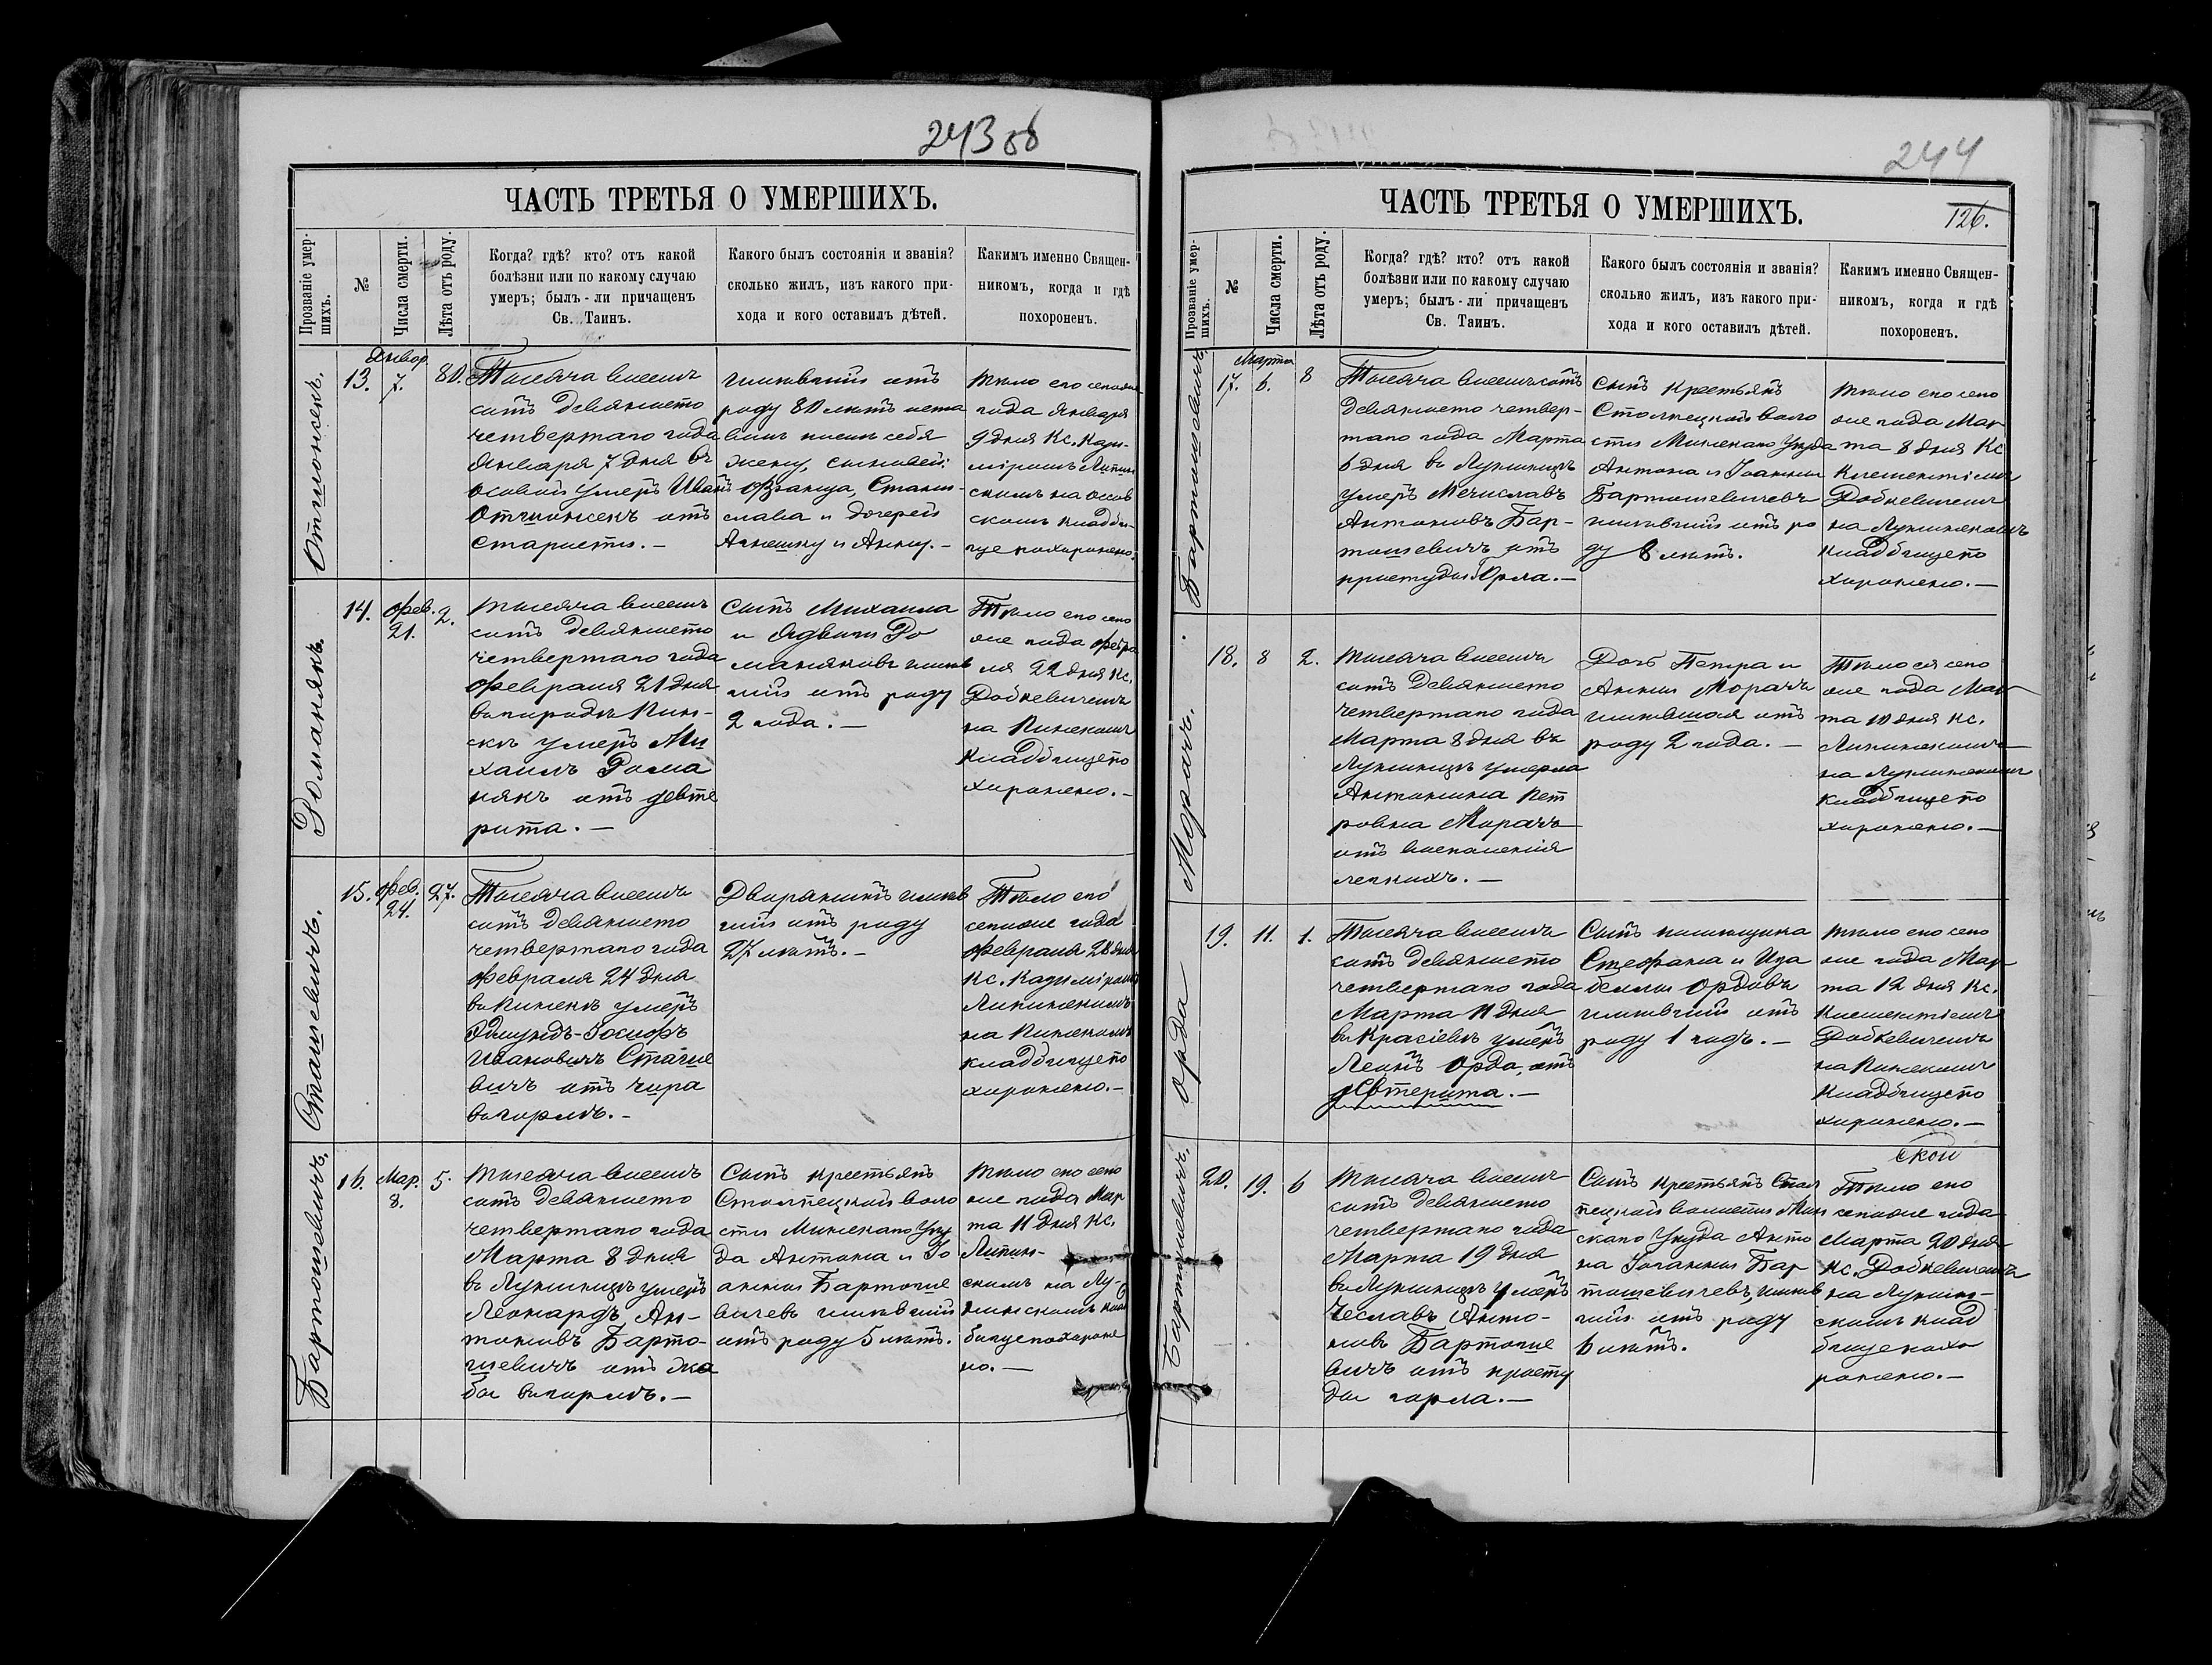 243 об
ЧАСТЬ ТРЕТЬЯ О УМЕРШИХЪ.
Прозваніе умер-
шихъ.
№
Числа смерти.
Лѣта отъ роду.
Когда? гдѣ? кто? отъ какой
болѣзни или по какому случаю
умеръ; былъ-ли причащенъ
Св. Таинъ.
Какого былъ состоянія и званія?
сколько жилъ, изъ какого при-
хода и кого оставилъ дѣтей.
Какимъ именно Священ-
никомъ, когда и гдѣ
похороненъ.
13.
Январ.
7.
80.
Тысяча восемь
сотъ девяносто
четвертаго года
Января 7 дня въ
умеръ Иванъ
отъ
старости.-
жившій отъ
роду 80 лѣтъ оста
вилъ послѣ себя
жену, сыновей:
Франца, Стани-
слава и дочерей
и Анну.-
тѣло его сегоже
года Января
9 дня Кс. Кази-
міромъ Липин
скимъ на
скомъ кладби-
ще похоронено.
Романякъ.
14.
Фев.
21.
2.
тысяча восемь
сотъ девяносто
четвертаго года
Февраля 21 дня
въ городѣ Пин-
скѣ умеръ Ми
хаилъ Рома
някъ отъ дефте
рита.-
Сынъ Михаила
и Ядвиги Ро
маняковъ живъ
шій отъ роду
2 года.-
Тѣло его сего
же года Февра
ля 22 дня Кс.
Добкевичемъ
на Пинскомъ
кладбище по
хоронено.-
Сташевичъ.
15.
Фев.
24.
27.
Тысяча восемь
сотъ девяносто
четвертаго года
Февраля 24 дня
въ Пинскѣ умеръ
Эдмундъ-Іосифъ
Ивановичъ Сташе
вичъ отъ
въ горлѣ.-
Дворянинъ живъ
шій отъ роду
27 лѣтъ.-
Тѣло его
сегоже года
Февраля 28 дня
Кс. Казиміромъ
Липинскимъ
на Пинскомъ
кладбище по
хоронено.-
Бартошевичъ.
16.
Мар.
8.
5.
тысяча восемь
сотъ девяносто
четвертаго года
Марта 8 дня
въ Лунинцѣ умеръ
Леонардъ Ан-
тоновъ Барто-
шевичъ отъ жа
бы въ горлѣ.-
Сынъ крестьянъ
Столпецкой воло
сти Минскаго Уѣз
да Антона и Іо
анны Бартоше
вичевъ жившій
отъ роду 5 лѣтъ.
тѣло его сего
же года Мар
та 11 дня Кс.
Липин-
скимъ на Лу-
нинскомъ клад
бище похороне
но.-
244
126.
ЧАСТЬ ТРЕТЬЯ О УМЕРШИХЪ.
Прозваніе умер-
шихъ.
№
Числа смерти.
Лѣта отъ роду.
Когда? гдѣ? кто? отъ какой
болѣзни или по какому случаю
умеръ; былъ-ли причащенъ
Св. Таинъ.
Какого былъ состоянія и званія?
сколько жилъ, изъ какого при-
хода и кого оставилъ дѣтей.
Какимъ именно Священ-
никомъ, когда и гдѣ
похороненъ.
Бартошевичъ
17.
Марта
6.
8
Тысяча восемьсотъ
девяносто четвер-
таго года Марта
6 дня въ Лунинцѣ
умеръ Мечиславъ
Антоновъ Бар-
тошевичъ отъ
простуды горла.-
Сынъ крестьянъ
Столпецкой воло
сти Минскаго Уѣзда
Антона и Іоанны
Бартошевичевъ
жившій отъ ро
ду 8 лѣтъ.
тѣло его сего
же года Мар
та 8 дня Кс
Клементіемъ
Добкевичемъ
на Лунинскомъ
кладбище по
хоронено.-
Морачъ.
18.
8
2.
тысяча восемь
сотъ девяносто
четвертаго года
Марта 8 дня въ
Лунинцѣ умерла
Антонина Пет
ровна Морачъ
отъ воспаленія
легкихъ.-
Дочь Петра и
Анны Морачъ
жившая отъ
роду 2 года.-
Тѣло ея сего
же года Мар
та 10 дня Кс.
Липинскимъ
на Лунинскомъ
кладбище по
хоронено.-
Орда
19.
11.
1.
Тысяча восемь
сотъ девяносто
четвертаго года
Марта 11 дня
въ Красіевѣ умеръ
Леонъ Орда, отъ
дефтерита.-
Сынъ помѣщика
Стефана и Иза
беллы Ордовъ
жившій отъ
роду 1 годъ.-
тѣло его сего
же года Мар
та 12 дня Кс.
Клементіемъ
Добкевичемъ
на Пинскомъ
кладбище по
хоронено.-
Бартошевичъ.
20.
19.
6
тысяча восемь
сотъ девяносто
четвертаго года
Марта 19 дня
въ Лунинцѣ умеръ
Чеславъ Анто-
новъ Бартоше
вичъ отъ просту
ды горла.-
Сынъ крестьянъ Стол
пецкой волости Мин
скаго Уѣзда Анто
на Іоанны Бар
тошевичевъ, живъ
шій отъ роду
6 лѣтъ.
Тѣло его
сегоже года
Марта 20 дня
Кс. Добкевичемъ
на Лунин-
скомъ клад
бище похо
ронено.-